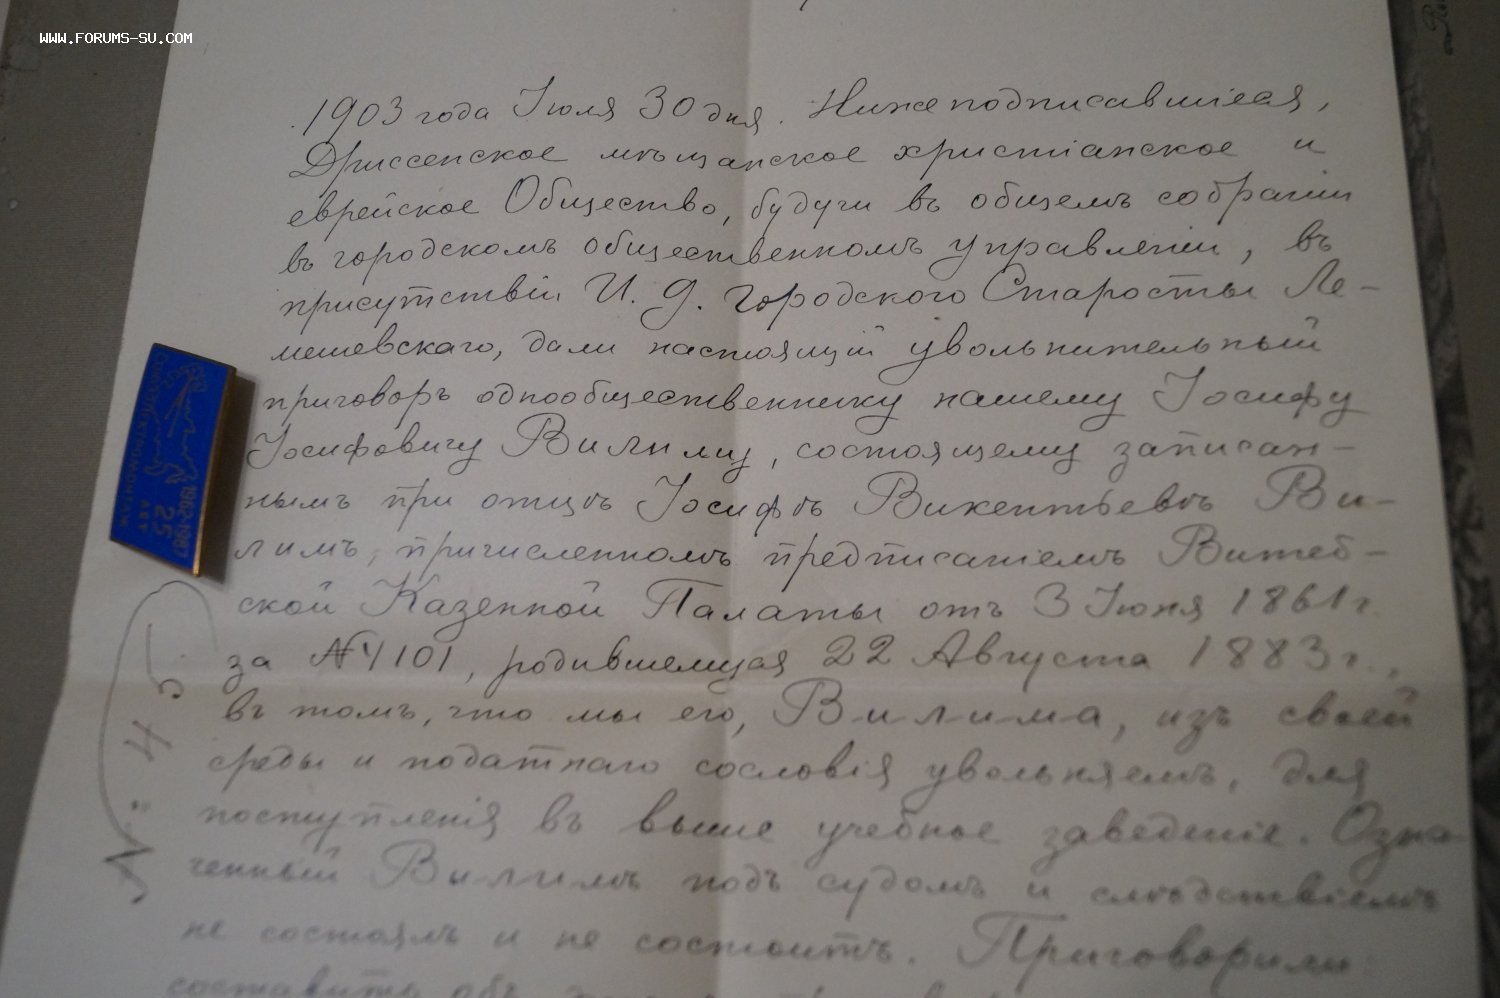 WWW.FORUMS-SU.COM
1903 года Іюля 30 дня. Нижеподписавшіеся,
Дриссенское мѣщанское христіанское и
еврейское Общество, будучи въ общемъ собраніи
въ городскомъ общественномъ управленіи, въ
присутствіи И. д. Городского Старосты Ле-
мешевскаго, дали настоящій увольнительный
приговоръ однообщественнику нашему Іосифу
Іосифовичу Вилиму, состоящему записан-
нымъ при отцѣ Іосифѣ Викентьевѣ Ви-
лимъ, причисленномъ предписаніемъ Витеб-
ской Казенной Палаты отъ 3 Іюня 1861 г.
за № 4101, родившемуся 22 Августа 1883 г.,
въ томъ, что мы его, Вилима, изъ своей
среды и податнаго сословія увольняемъ, для
поступленія въ высше учебное заведеніе. Озна-
ченный Вилимъ подъ судомъ и слѣдствіемъ
не состоялъ и не состоитъ. Приговорили
составить объ
№: 45
СОЮЗЭЛЕКТРОМОНТАЖ
1962-1987
25
ЛЕТ